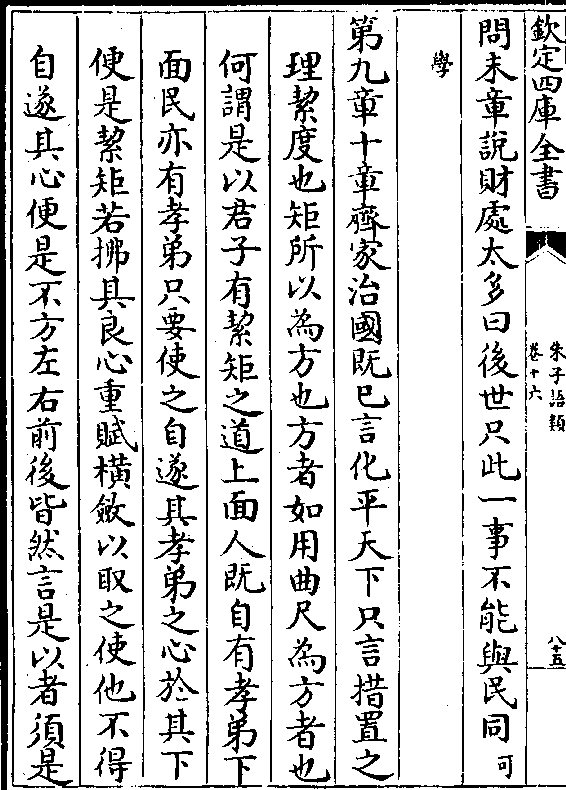 欽定四庫全書
朱子語類
卷十六
八十五
問末章說財處太多曰後世只此一事不能與民同可
學
第九章十章齊家治國既已言化平天下只言措置之
理絜度也矩所以為方也方者如用曲尺為方者也
何謂是以君子有絜矩之道上面人既自有孝弟下
面民亦有孝弟只要使之自遂其孝弟之心於其下
便是絜矩若拂其良心重賦橫斂以取之使他不得
自遂其心便是不方左右前後皆然言是以者須是